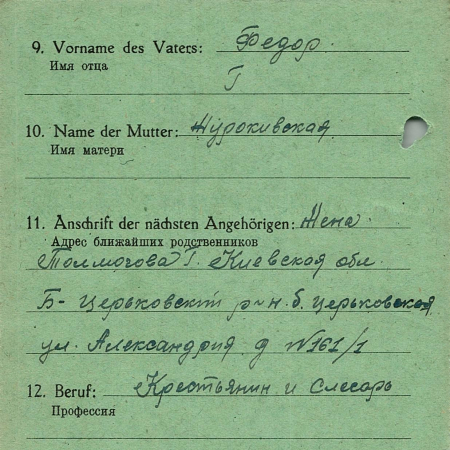 9. Vorname des Vaters: Федор
Имя отца
Г
10. Name der Mutter: Журокивская
Имя матери
11. Anschrift der nächsten Angehörigen: Жена
Адрес ближайших родственников
Толмочова Г. Киевская обл
Б- Церьковский р-н. б. церьковская
ул. Александрия д №161/1
12. Beruf: Крестьянин и Слесарь
Профессия